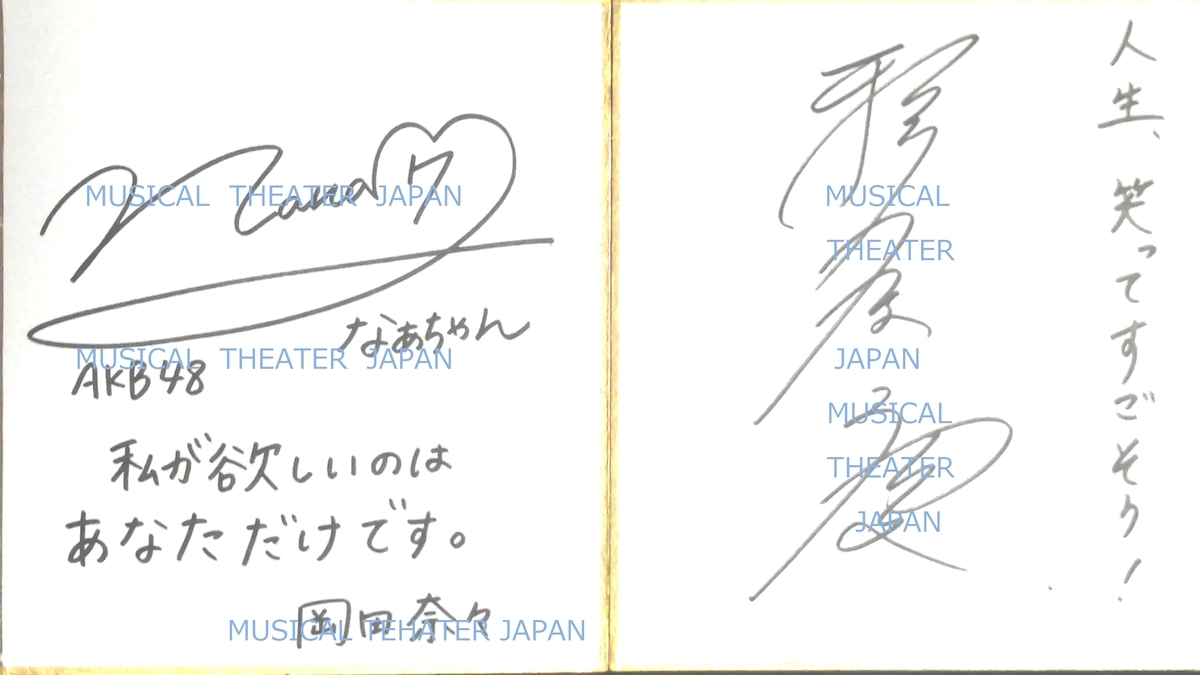 Nana
なあちゃん
AKB48
私が欲しいのは
あなただけです。
岡田奈々
人生、笑ってすごそう!
MUSICAL THEATER JAPAN
MUSICAL THEATER JAPAN
MUSICAL TEHATER JAPAN
MUSICAL
THEATER
JAPAN
MUSICAL
THEATER
JAPAN